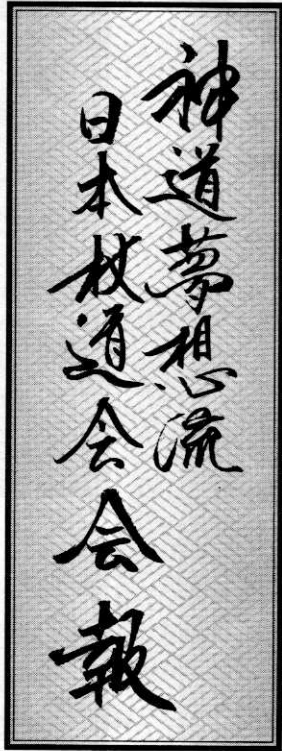 神道夢想流
日本杖道会会報